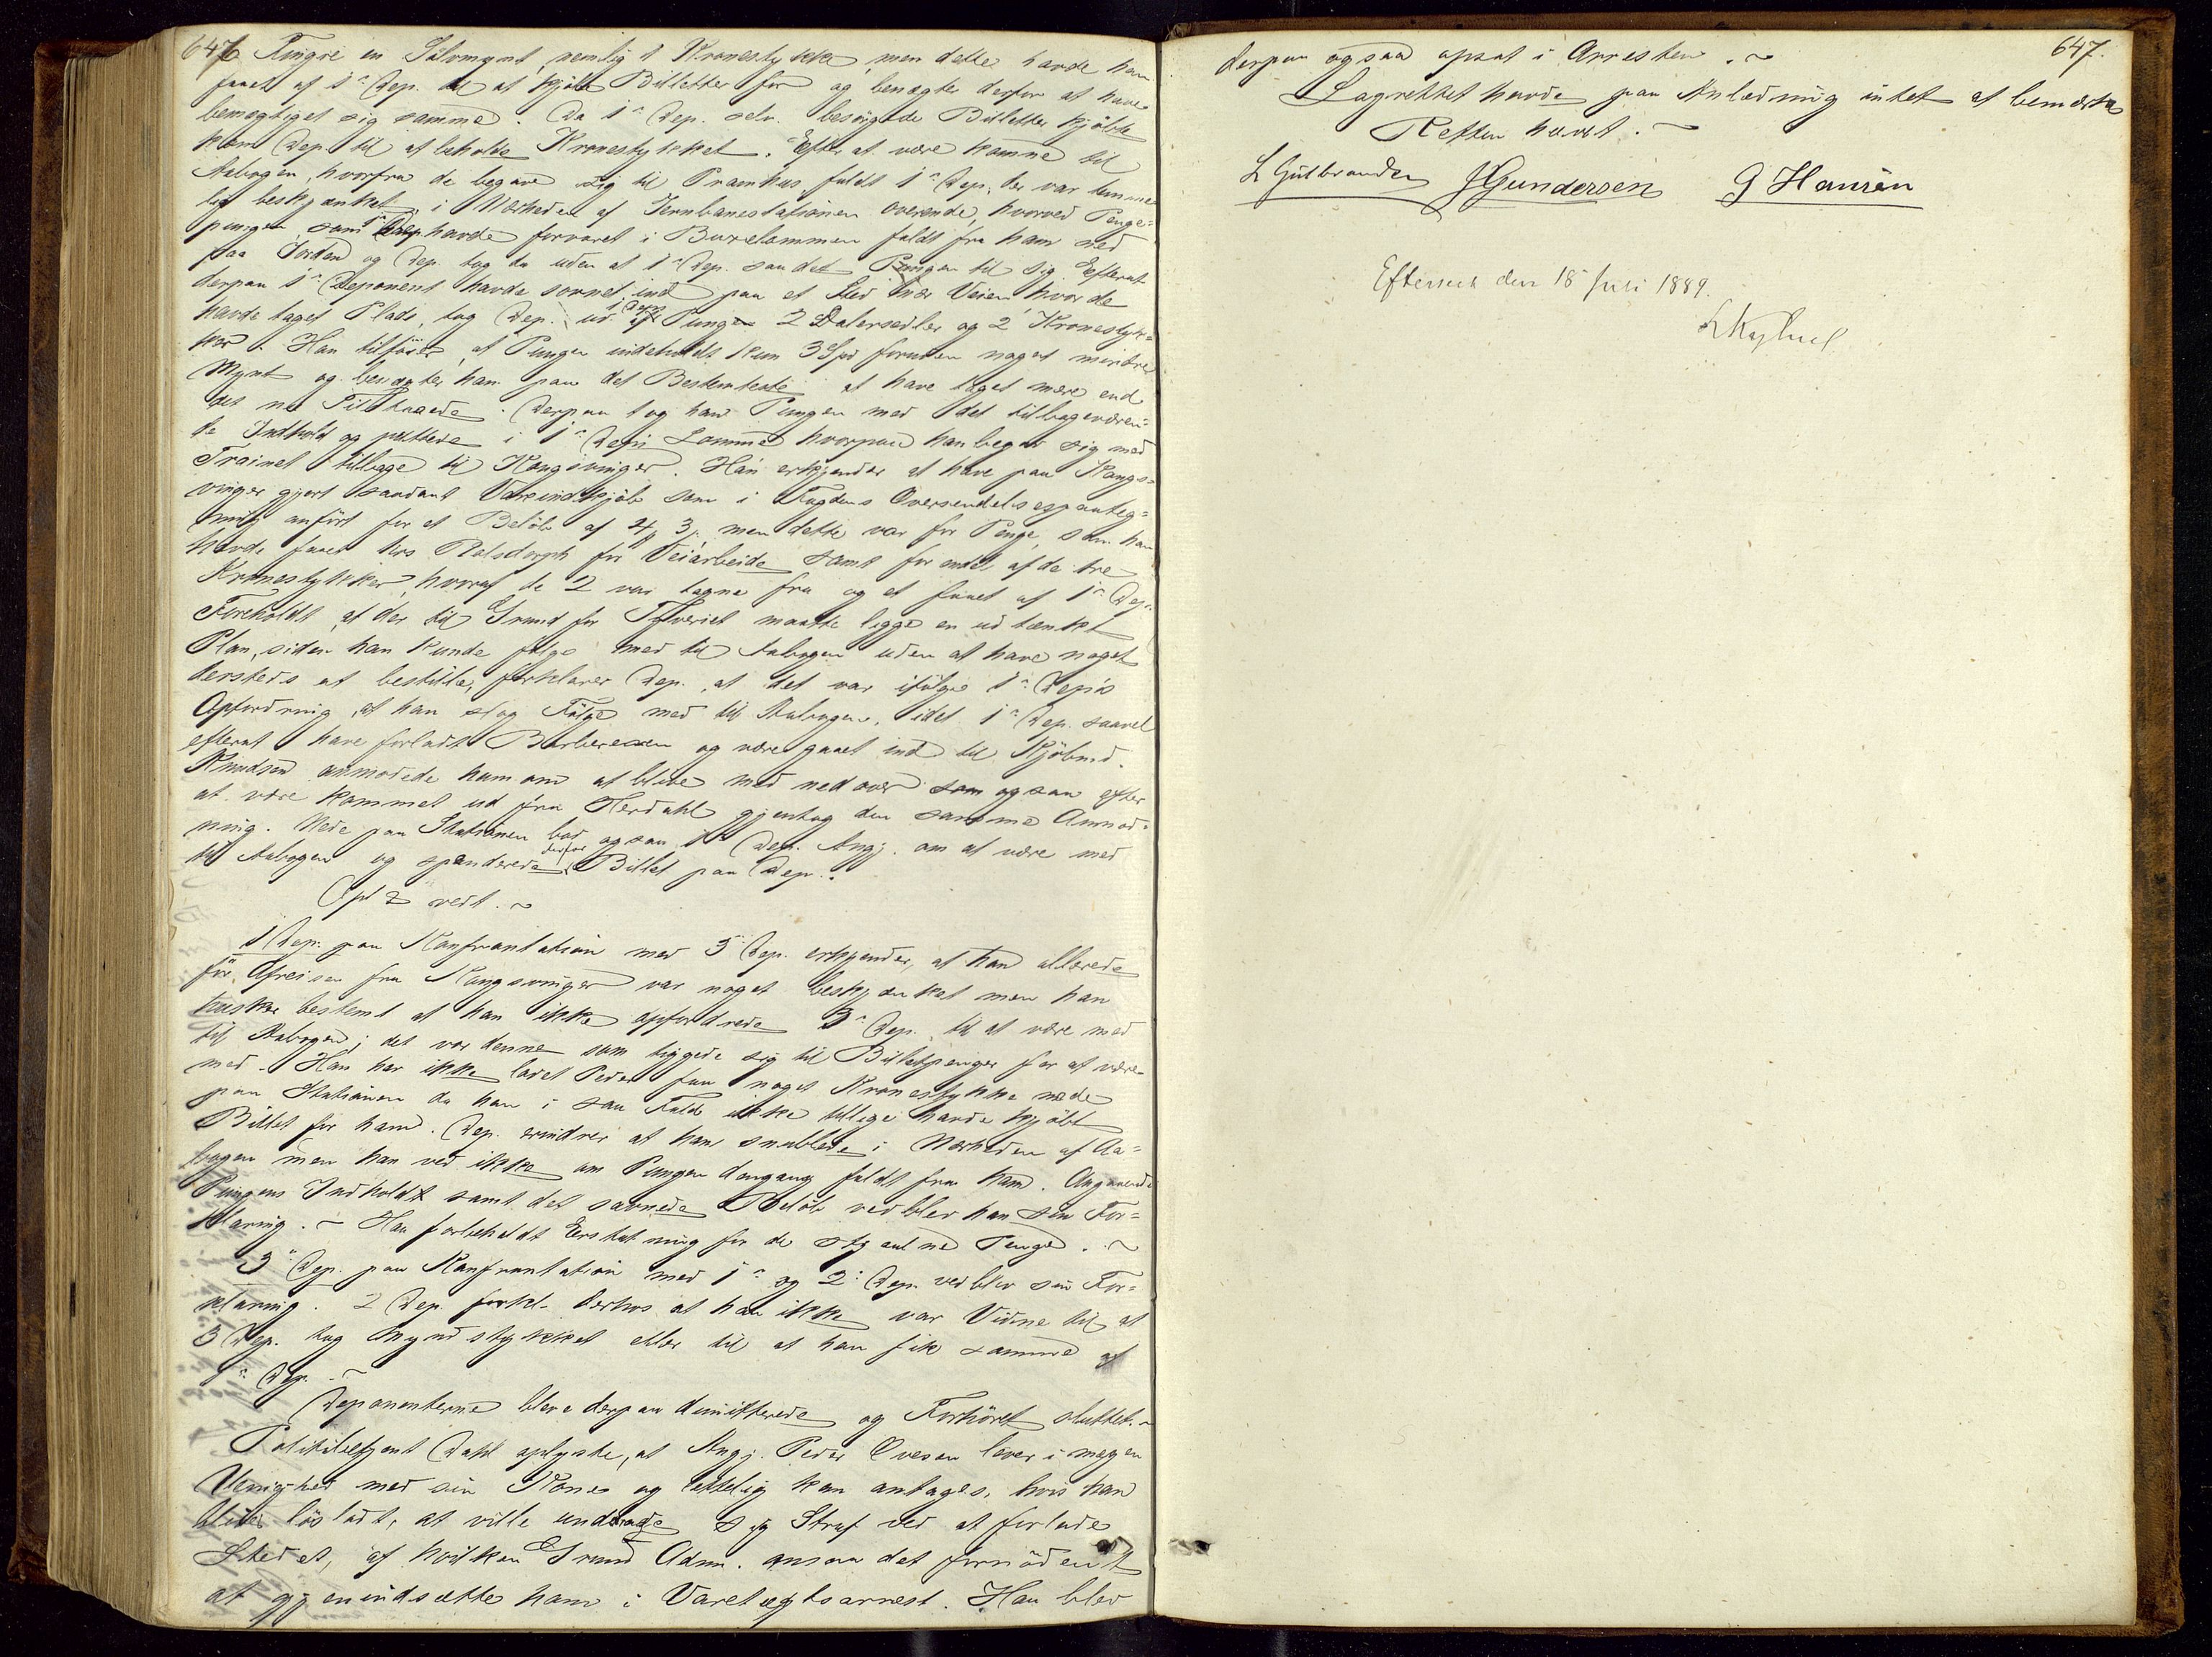 646
Fingre en Sölvmynt, nemlig 1 Kronestykke, men dette havde han
faaet af 1ste Dep. til at kjöbe Billetter for og benægter derfor at have
bemægtiget sig samme. Da 1ste Dep. selv besörgede Billetter kjöbte
kom Dep. til at beholde Kronestykket. Efter at være komne til
Aabogen, hvorfra de begave sig til Pramhus, faldt 1ste Dep., der var temme-
lig beskjænket, i Nærheden af Jernbanestationen overende, hvorved Penge-
pungen, som 1ste Dep. havde forvaret i Buxelommen faldt fra ham ned
paa Jorden og Dep. tog da uden at 1ste Dep. saa det Pungen til sig. Efterat
derpaa 1ste Deponent havde sovnet ind paa et Sted nær Veien hvor de
havde taget Plads, tog Dep. ud af Pungen 2 Dalersedler og 2 Kronestyk-
ker. Han tilföier, at Pungen indeholdt kun 3 Spd foruden noget mindre
Mynt og benægter han paa det Bestemteste at have taget mere end
det nu Tilstaaede. Derpaa tog han Pungen med det tilbageværen-
de Indhold og puttede i 1ste Deps Lomme hvorpaa han begav sig med
Trainet tilbage til Kongsvinger. Han erkjender at have paa Kongs-
vinger gjort saadant Vareindkjöb som i Fogdens Oversendelsespaateg-
ning anfört for et Belöb af 4 3 men dette var for Penge, som han
havde faaet hos Rolsdorph for Veiarbeide samt for endel af de tre
Kronestykker, hvoraf de 2 var tagne fra og et faaet af 1ste Dep.
Foreholdt, at der til Grund for Tyveriet maatte ligge en udtænkt
Plan, siden han kunde fölge med til Aabogen uden at have noget
dersteds at bestille, forklarer Dep., at det var ifölge 1ste Dep's
Opfordring, at han slog Fölge med til Aabogen, idet 1ste Dep. saavel
efterat have forladt Barberen og være gaaet ind til Kjöbmd.
Knudsen anmodede ham om at blive med nedover som ogsaa efter
at være kommet ud fra Herdahl gjentog den samme Anmod-
ning. Nede paa Stationen bad ogsaa 1ste Dep. Angj. om at være med
til Aabogen og spenderede derfor Billet paa Dep..
Opl & vedt.
1 Dep. paa Konfrontation med 3 Dep. erkjender, at han allerede
för Afreisen fra Kongsvinger var noget beskjænket men han
husker bestemt at han ikke opfordrede 3die Dep. til at være med
til Aabogen; det var denne som tiggede sig til Billetpenger for at være
med. Han har ikke ladet Peder faa noget Kronestykke nede
paa Stationen da han i saa Fald ikke tillige havde kjöbt
Billet for ham. Dep. erindrer at han snublede i Nærheden af Aa-
bogen men han ved ikke om Pungen dengang faldt fra ham. Angaaende
Pungens Indholdt samt det savnede Belöb vedblev han sin For-
klaring. Han forbeholdt Erstatning for de stjaalne Penge.
3die Dep. paa Konfrontation med 1ste og 2 Dep. vedblev sin For-
klaring. 2 Dep. forkl. derhos at han ikke var Vidne til at
3 Dep. tog Myndstykket eller til at han fik samme af
1ste Dep.
Deponenterne bleve derpaa dimitterede og Forhöret sluttet.
Politibetjent Dahl oplyste, at Angj. Peder Ovesen lever i megen
Uenighed med sin Kone og lettelig kan antages, hvis han
blive löslodt, at ville unddrage sig Straf ved at forlade
Stedet, af hvilken Grund Adm. ansaa det fornödent
at gjenindsætte ham i Varetægtsarrest. Han blev
647.
derpaa ogsaa afsat i Arresten.
Lagrettet havde paa Anledning intet at bemærke
Retten hævet.
L Gulbrandsen J Gundersen G Hansen
Efterseet den 18 Juli 1889.